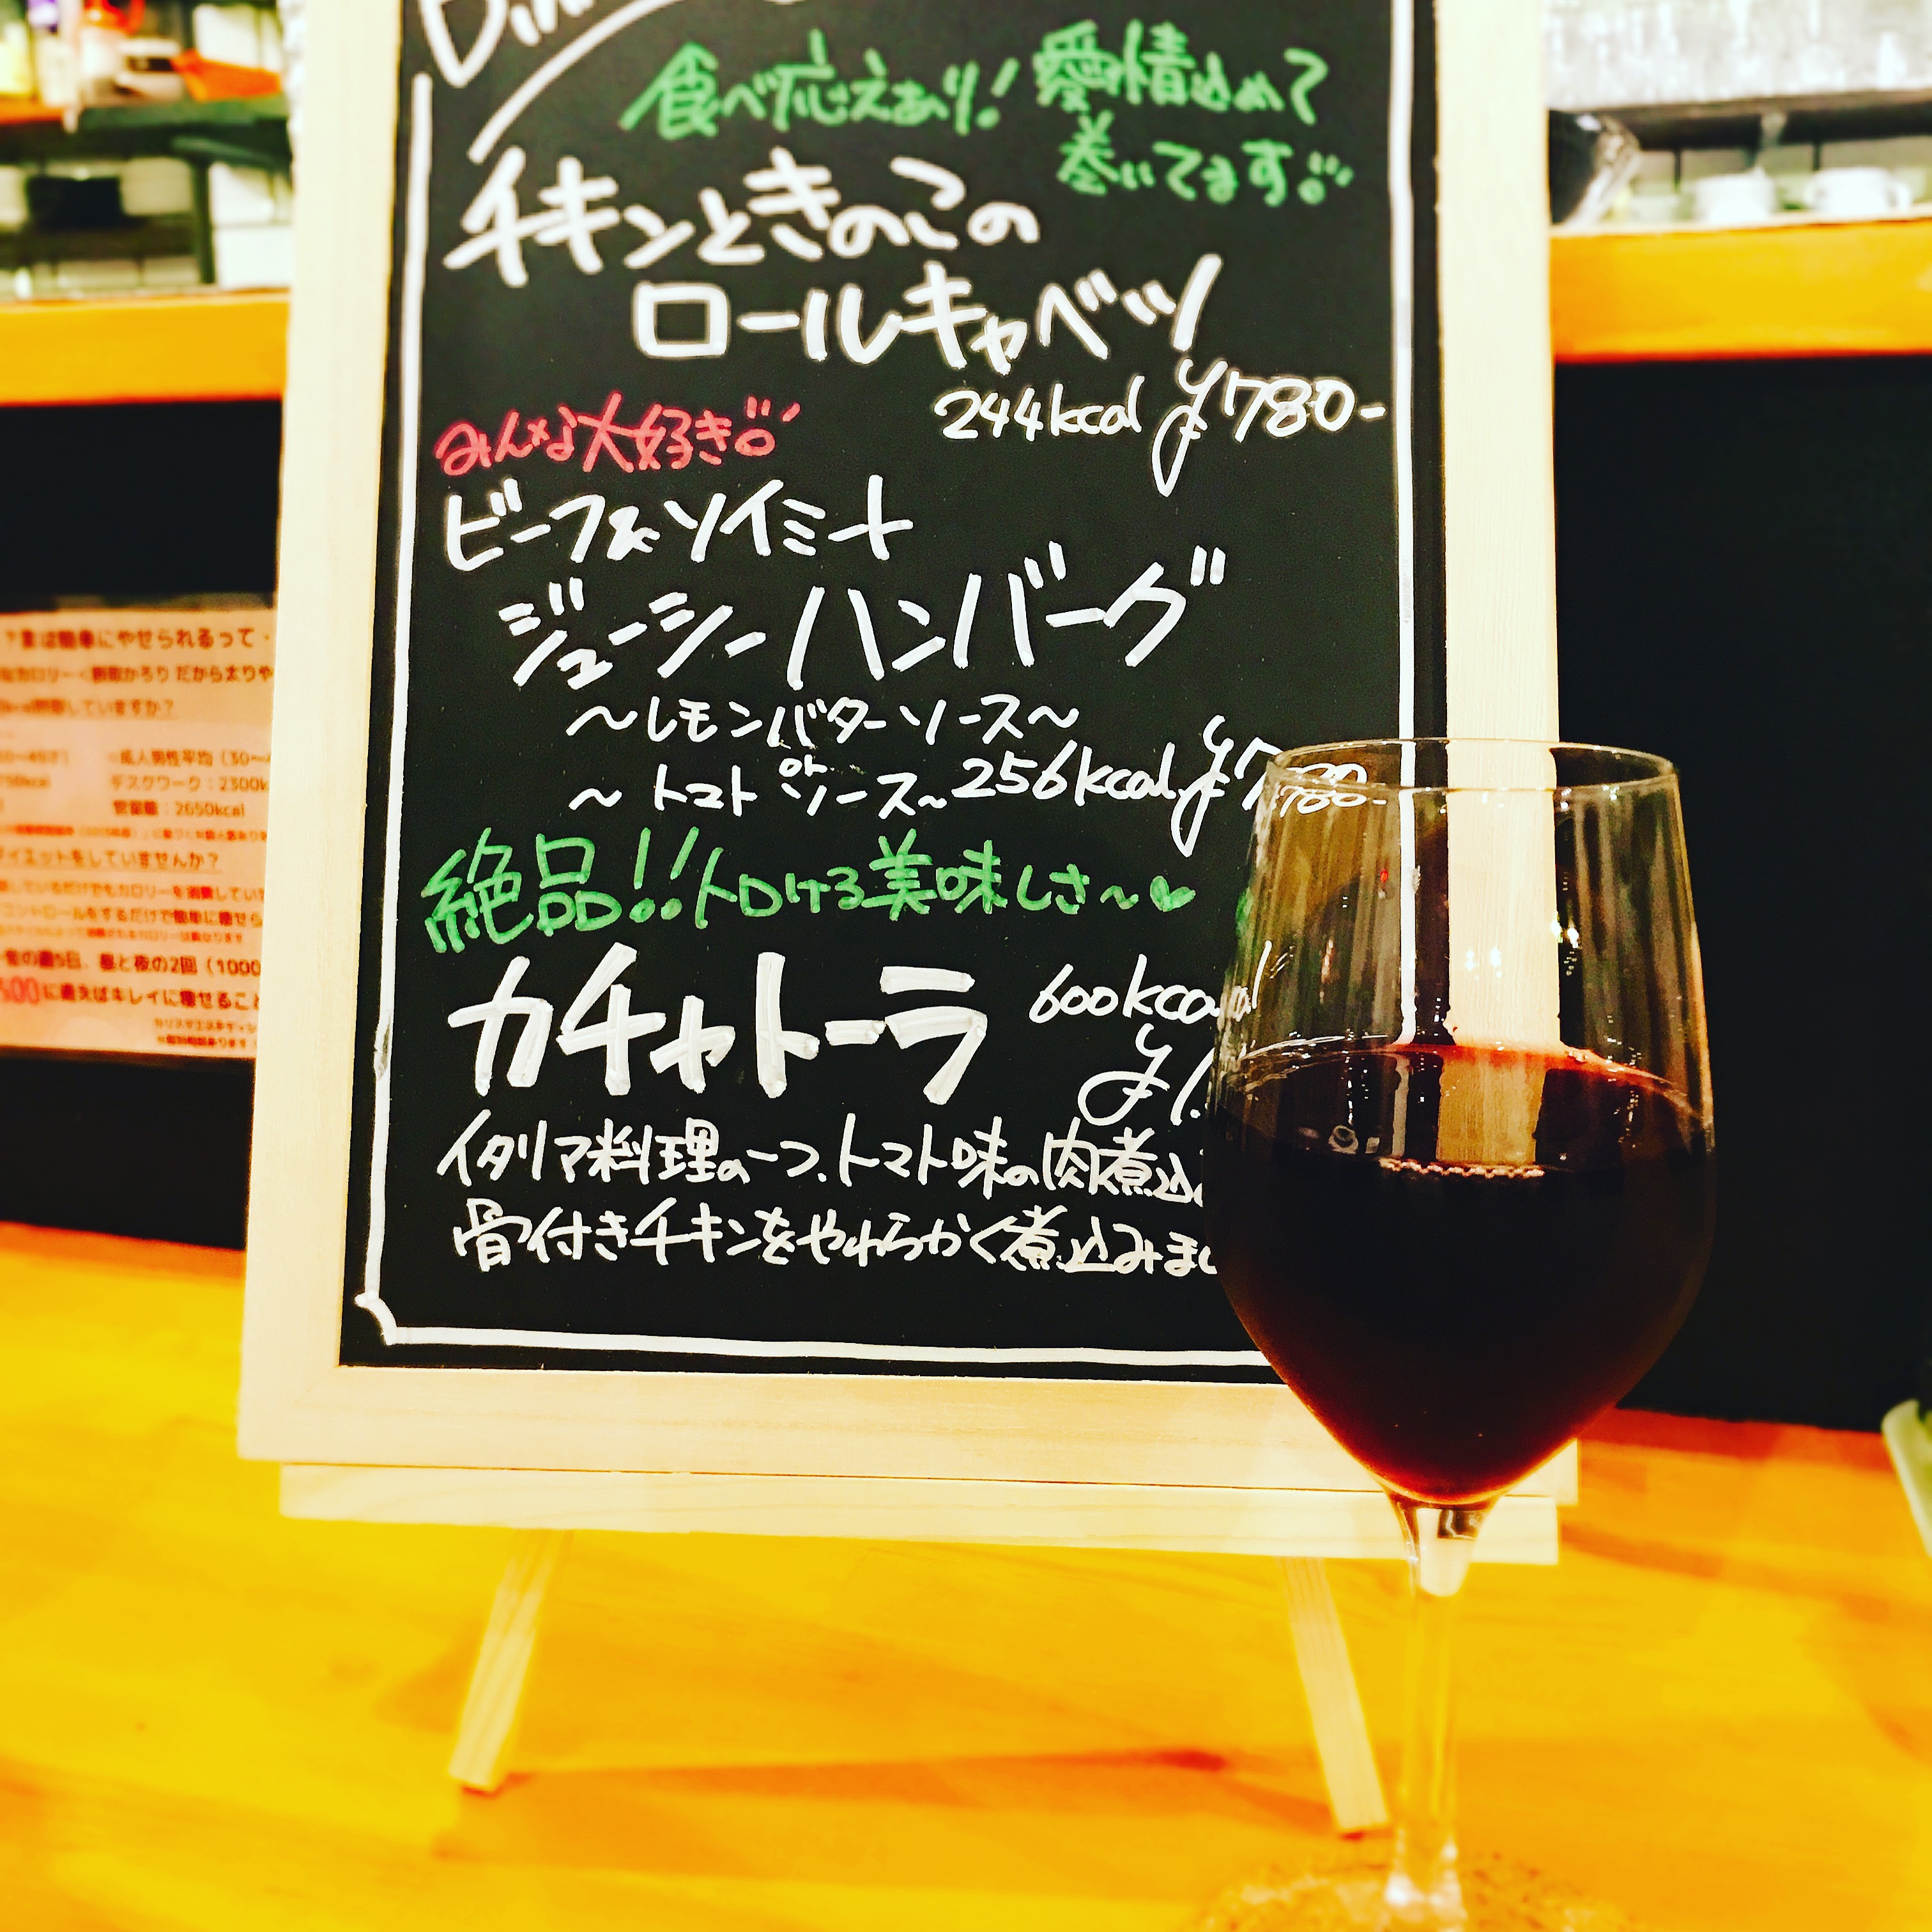 食べ応えあり! 愛情込めて
巻いてます!!
チキンときのこの
ロールキャベツ
244kcal ¥780-
みんな大好き!!
ビーフ&ソイミート
ジューシーハンバーグ
～レモンバターソース～
or
～トマトソース～ 256kcal ¥780-
絶品!!トロける美味しさ～♥
カチャトーラ 600kcal
¥1.
イタリア料理の一つ、トマト味の肉煮込
骨付きチキンをやわらかく煮込みまし
は簡単にやせられるって
カロリー
だから太りや
していますか?
成人男性平均(30～
デスクワーク:2300k
:2650kcal
イエットをしていませんか?
しているだけでもカロリーを消費してい
コントロールをするだけで簡単に痩せら
週5日、昼と夜の2回(1000
500に変えばキレイに痩せること